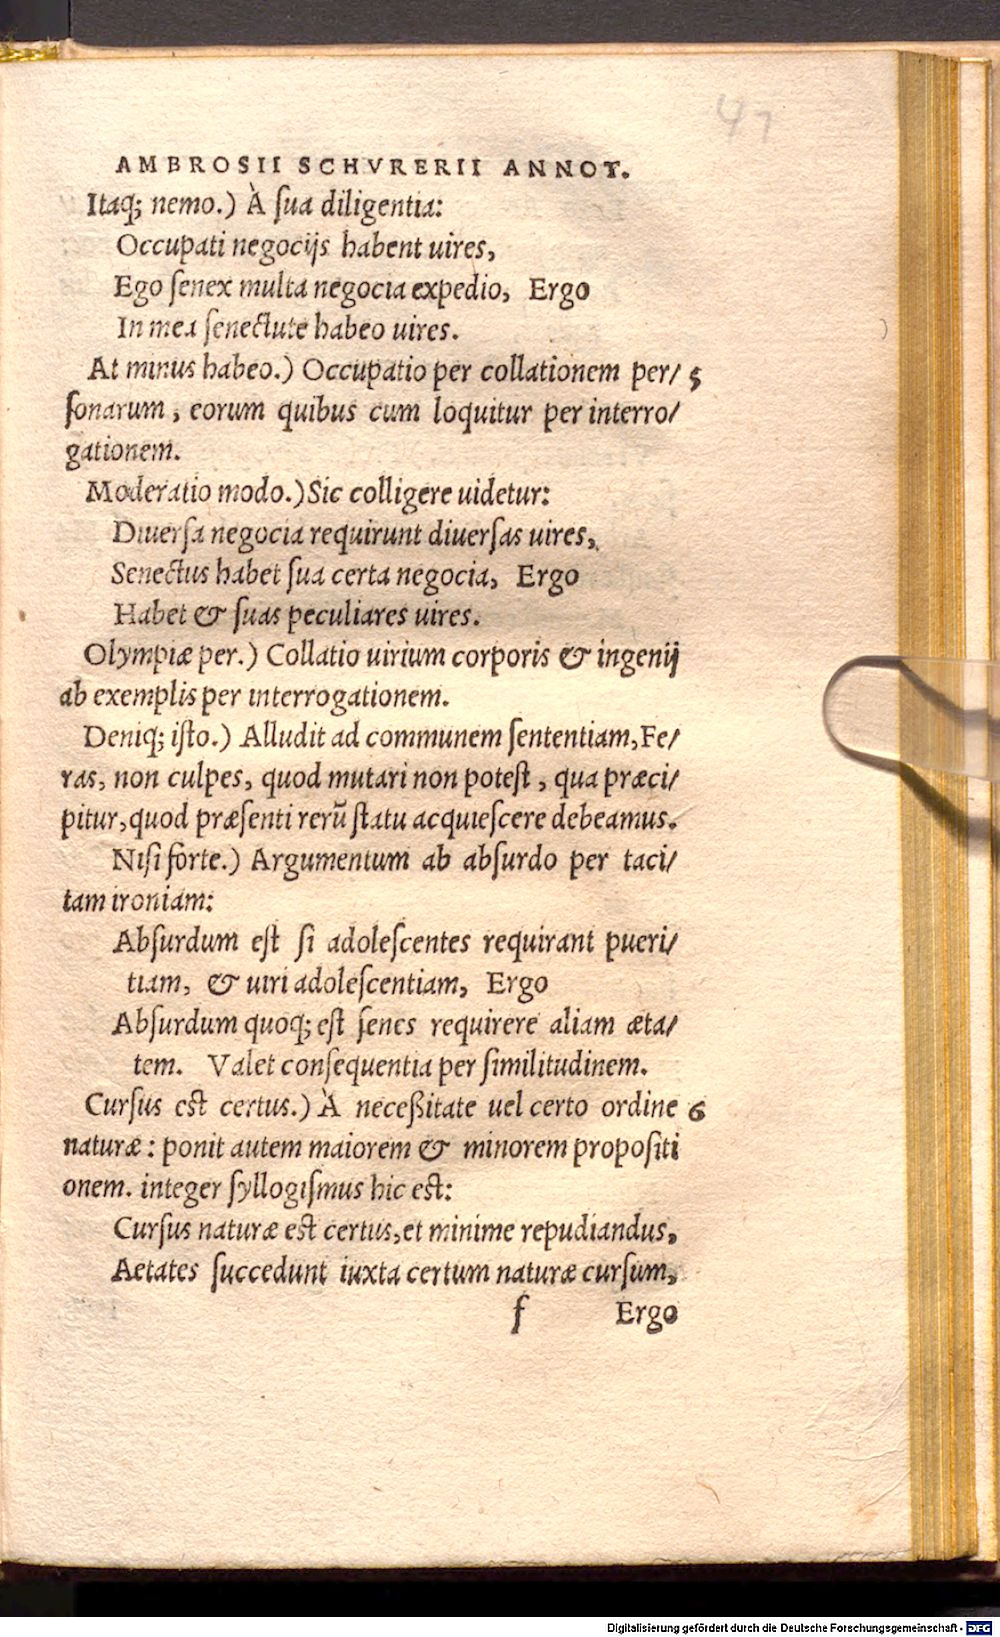 47
AMBROSII SCHVRERII ANNOT.
Itaq; nemo.) À ſua diligentia:
Occupati negocijs habent uires,
Ego ſenex multa negocia expedio, Ergo
In mea ſenectute habeo uires.
At minus habeo.) Occupatio per collationem per/ 5
ſonarum, eorum quibus cum loquitur per interro/
gationem.
Moderatio modo.) Sic colligere uidetur:
Diuerſa negocia requirunt diuerſas uires,
Senectus habet ſua certa negocia, Ergo
Habet & ſuas peculiares uires.
Olympiæ per.) Collatio uirium corporis & ingenij
ab exemplis per interrogationem.
Deniq; iſto.) Alludit ad communem ſententiam, Fe/
ras, non culpes, quod mutari non poteſt, qua præci/
pitur, quod præſenti rerū ſtatu acquieſcere debeamus.
Niſi forte.) Argumentum ab abſurdo per taci/
tam ironiam:
Abſurdum eſt ſi adoleſcentes requirant pueri/
tiam, & uiri adoleſcentiam, Ergo
Abſurdum quoq; eſt ſenes requirere aliam æta/
tem. Valet conſequentia per ſimilitudinem.
Curſus eſt certus.) À neceßitate uel certo ordine 6
naturæ: ponit autem maiorem & minorem propoſiti
onem. integer ſyllogiſmus hic eſt:
Curſus naturæ eſt certus, et minime repudiandus,
Aetates ſuccedunt iuxta certum naturæ curſum,
f Ergo
Digitalisierung gefördert durch die Deutsche Forschungsgemeinschaft - DFG